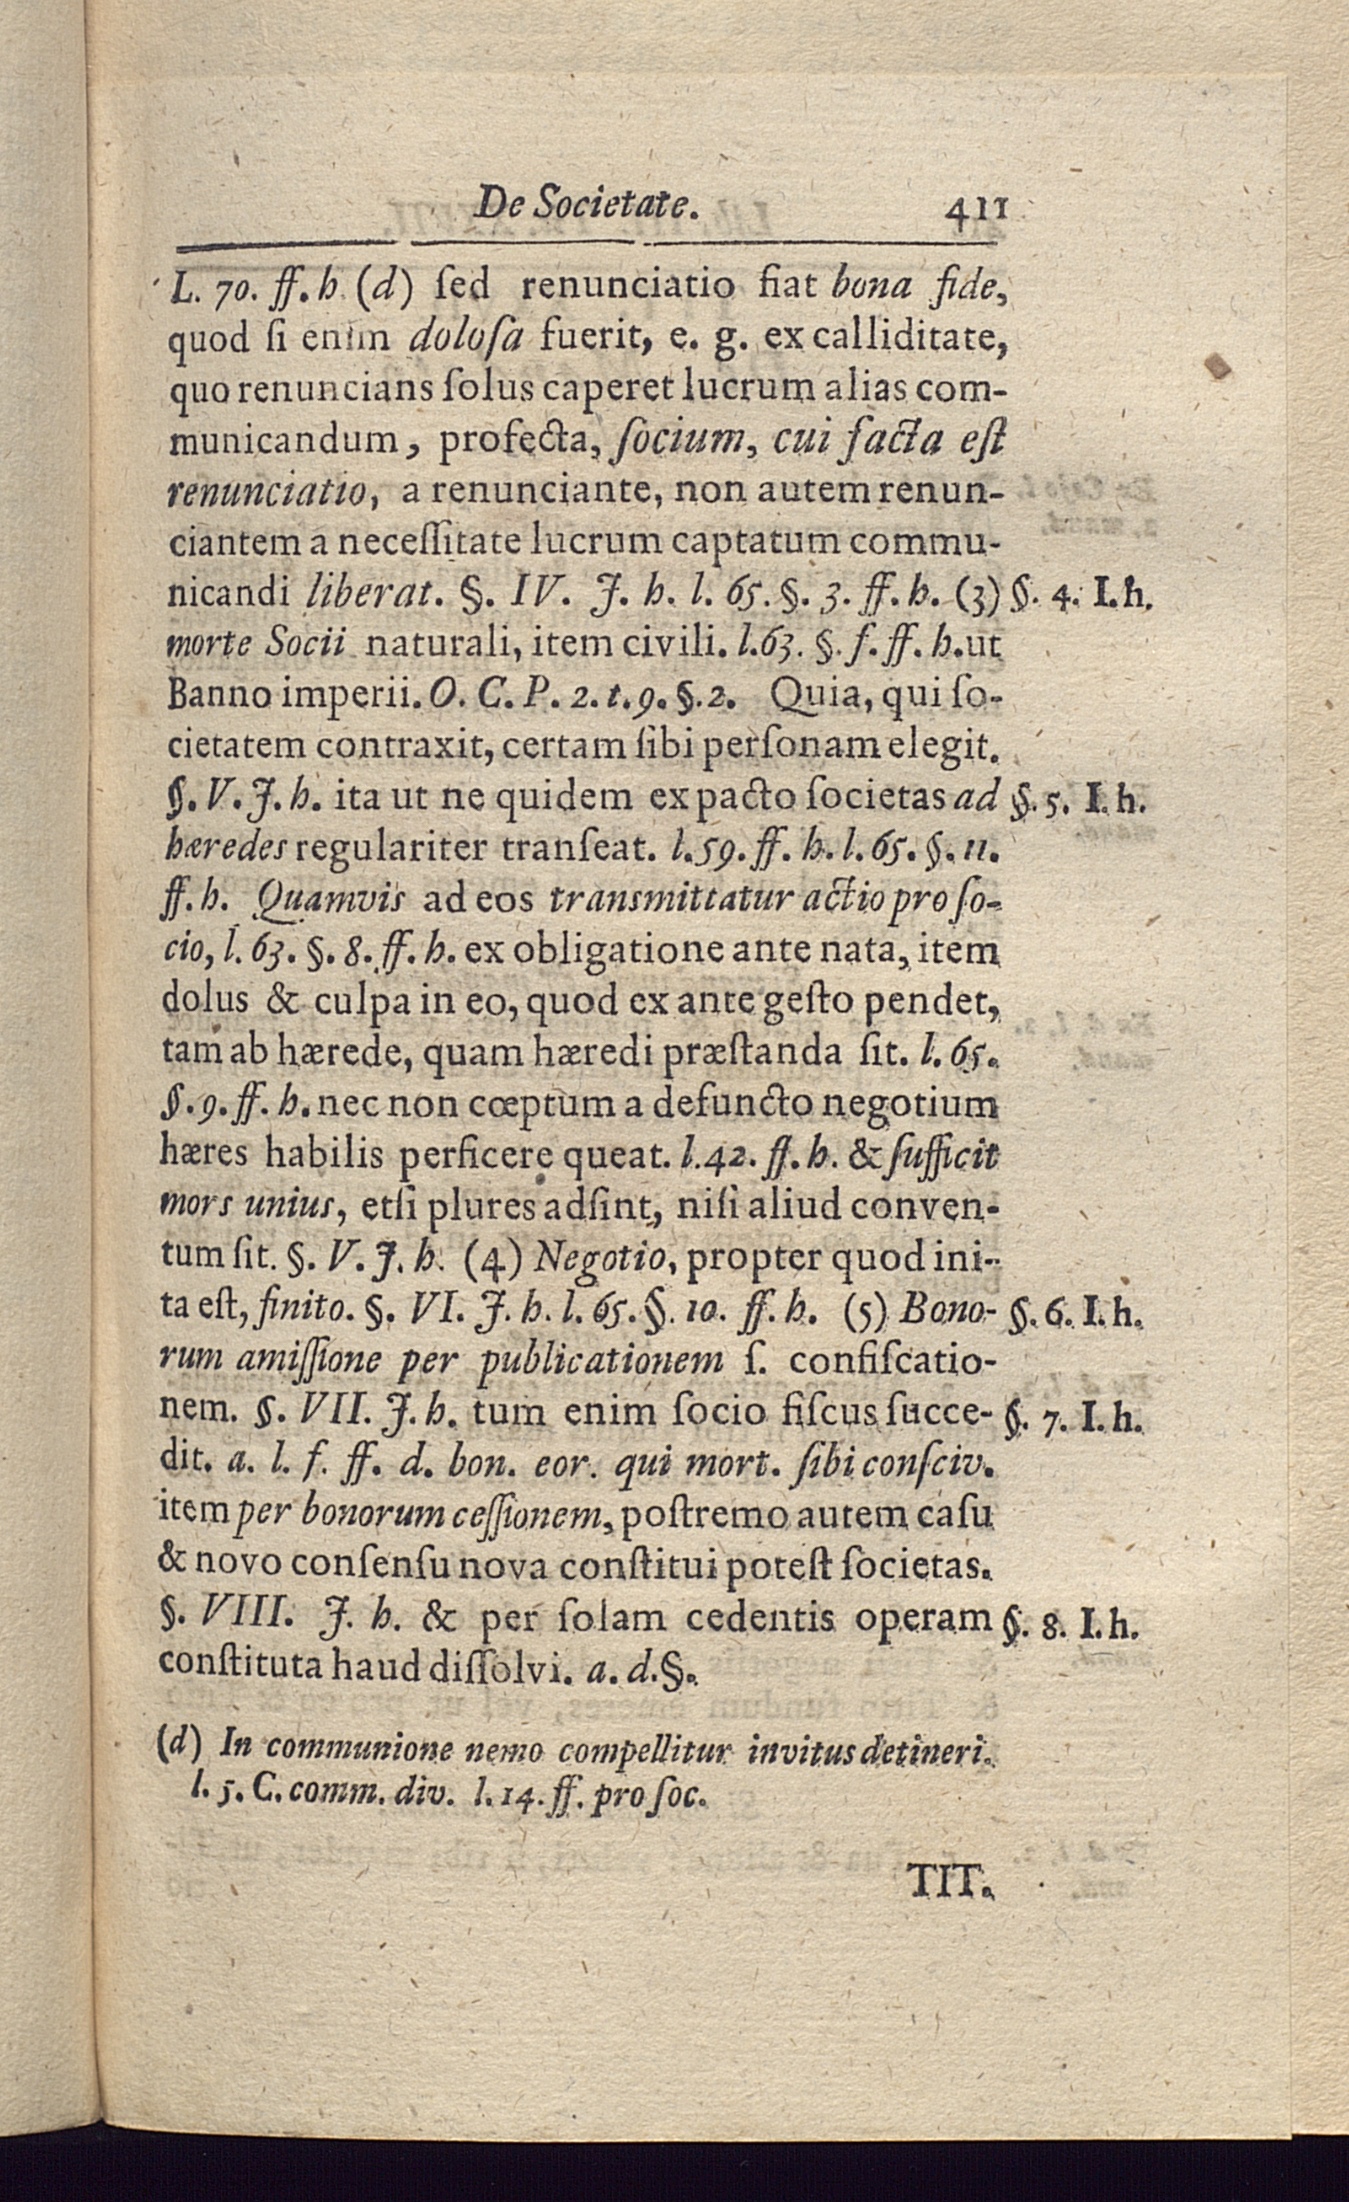 De Societate. 411
L. 70. ff. h (d) ſed renunciatio fiat bona fide,
quod ſi enim doloſa fuerit, e. g. ex calliditate,
quo renuncians ſolus caperet lucrum alias com-
municandum, profecta, ſocium, cui facta eſt
renunciatio, a renunciante, non autem renun-
ciantem a neceſſitate lucrum captatum commu-
nicandi liberat. §. IV. J. h. l. 65. §. 3. ff. h. (3) §. 4. I. h.
morte Socii naturali, item civili. l. 63. §. f. ff. h. ut
Banno imperii. O. C. P. 2. t. 9. §. 2. Quia, qui ſo-
cietatem contraxit, certam ſibi perſonam elegit.
§. V. J. h. ita ut ne quidem ex pacto ſocietas ad §. 5. I. h.
hæredes regulariter tranſeat. l. 59. ff. h. l. 65. §. 11.
ff. h. Quamvis ad eos transmittatur actio pro ſo-
cio, l. 63. §. 8. ff. h. ex obligatione ante nata, item
dolus & culpa in eo, quod ex ante geſto pendet,
tam ab hærede, quam hæredi præſtanda ſit. l. 65.
§. 9. ff. h. nec non cœptum a defuncto negotium
hæres habilis perficere queat. l. 42. ff. h. & ſufficit
mors unius, etſi plures adſint, niſi aliud conven-
tum ſit. §. V. J. h. (4) Negotio, propter quod ini-
ta eſt, finito. §. VI. J. h. l. 65. §. 10. ff. h. (5) Bono- §. 6. I. h.
rum amiſſione per publicationem ſ. confiſcatio-
nem. §. VII. J. h. tum enim ſocio fiſcus ſucce- §. 7. I. h.
dit. a. l. f. ff. d. bon. eor. qui mort. ſibi conſciv.
item per bonorum ceſſionem, poſtremo autem caſu
& novo conſenſu nova conſtitui poteſt ſocietas.
§. VIII. J. h. & per ſolam cedentis operam §. 8. I. h.
conſtituta haud diſſolvi. a. d. §.
(d) In communione nemo compellitur invitus detineri.
l. 5. C. comm. div. l. 14. ff. pro ſoc.
TIT.